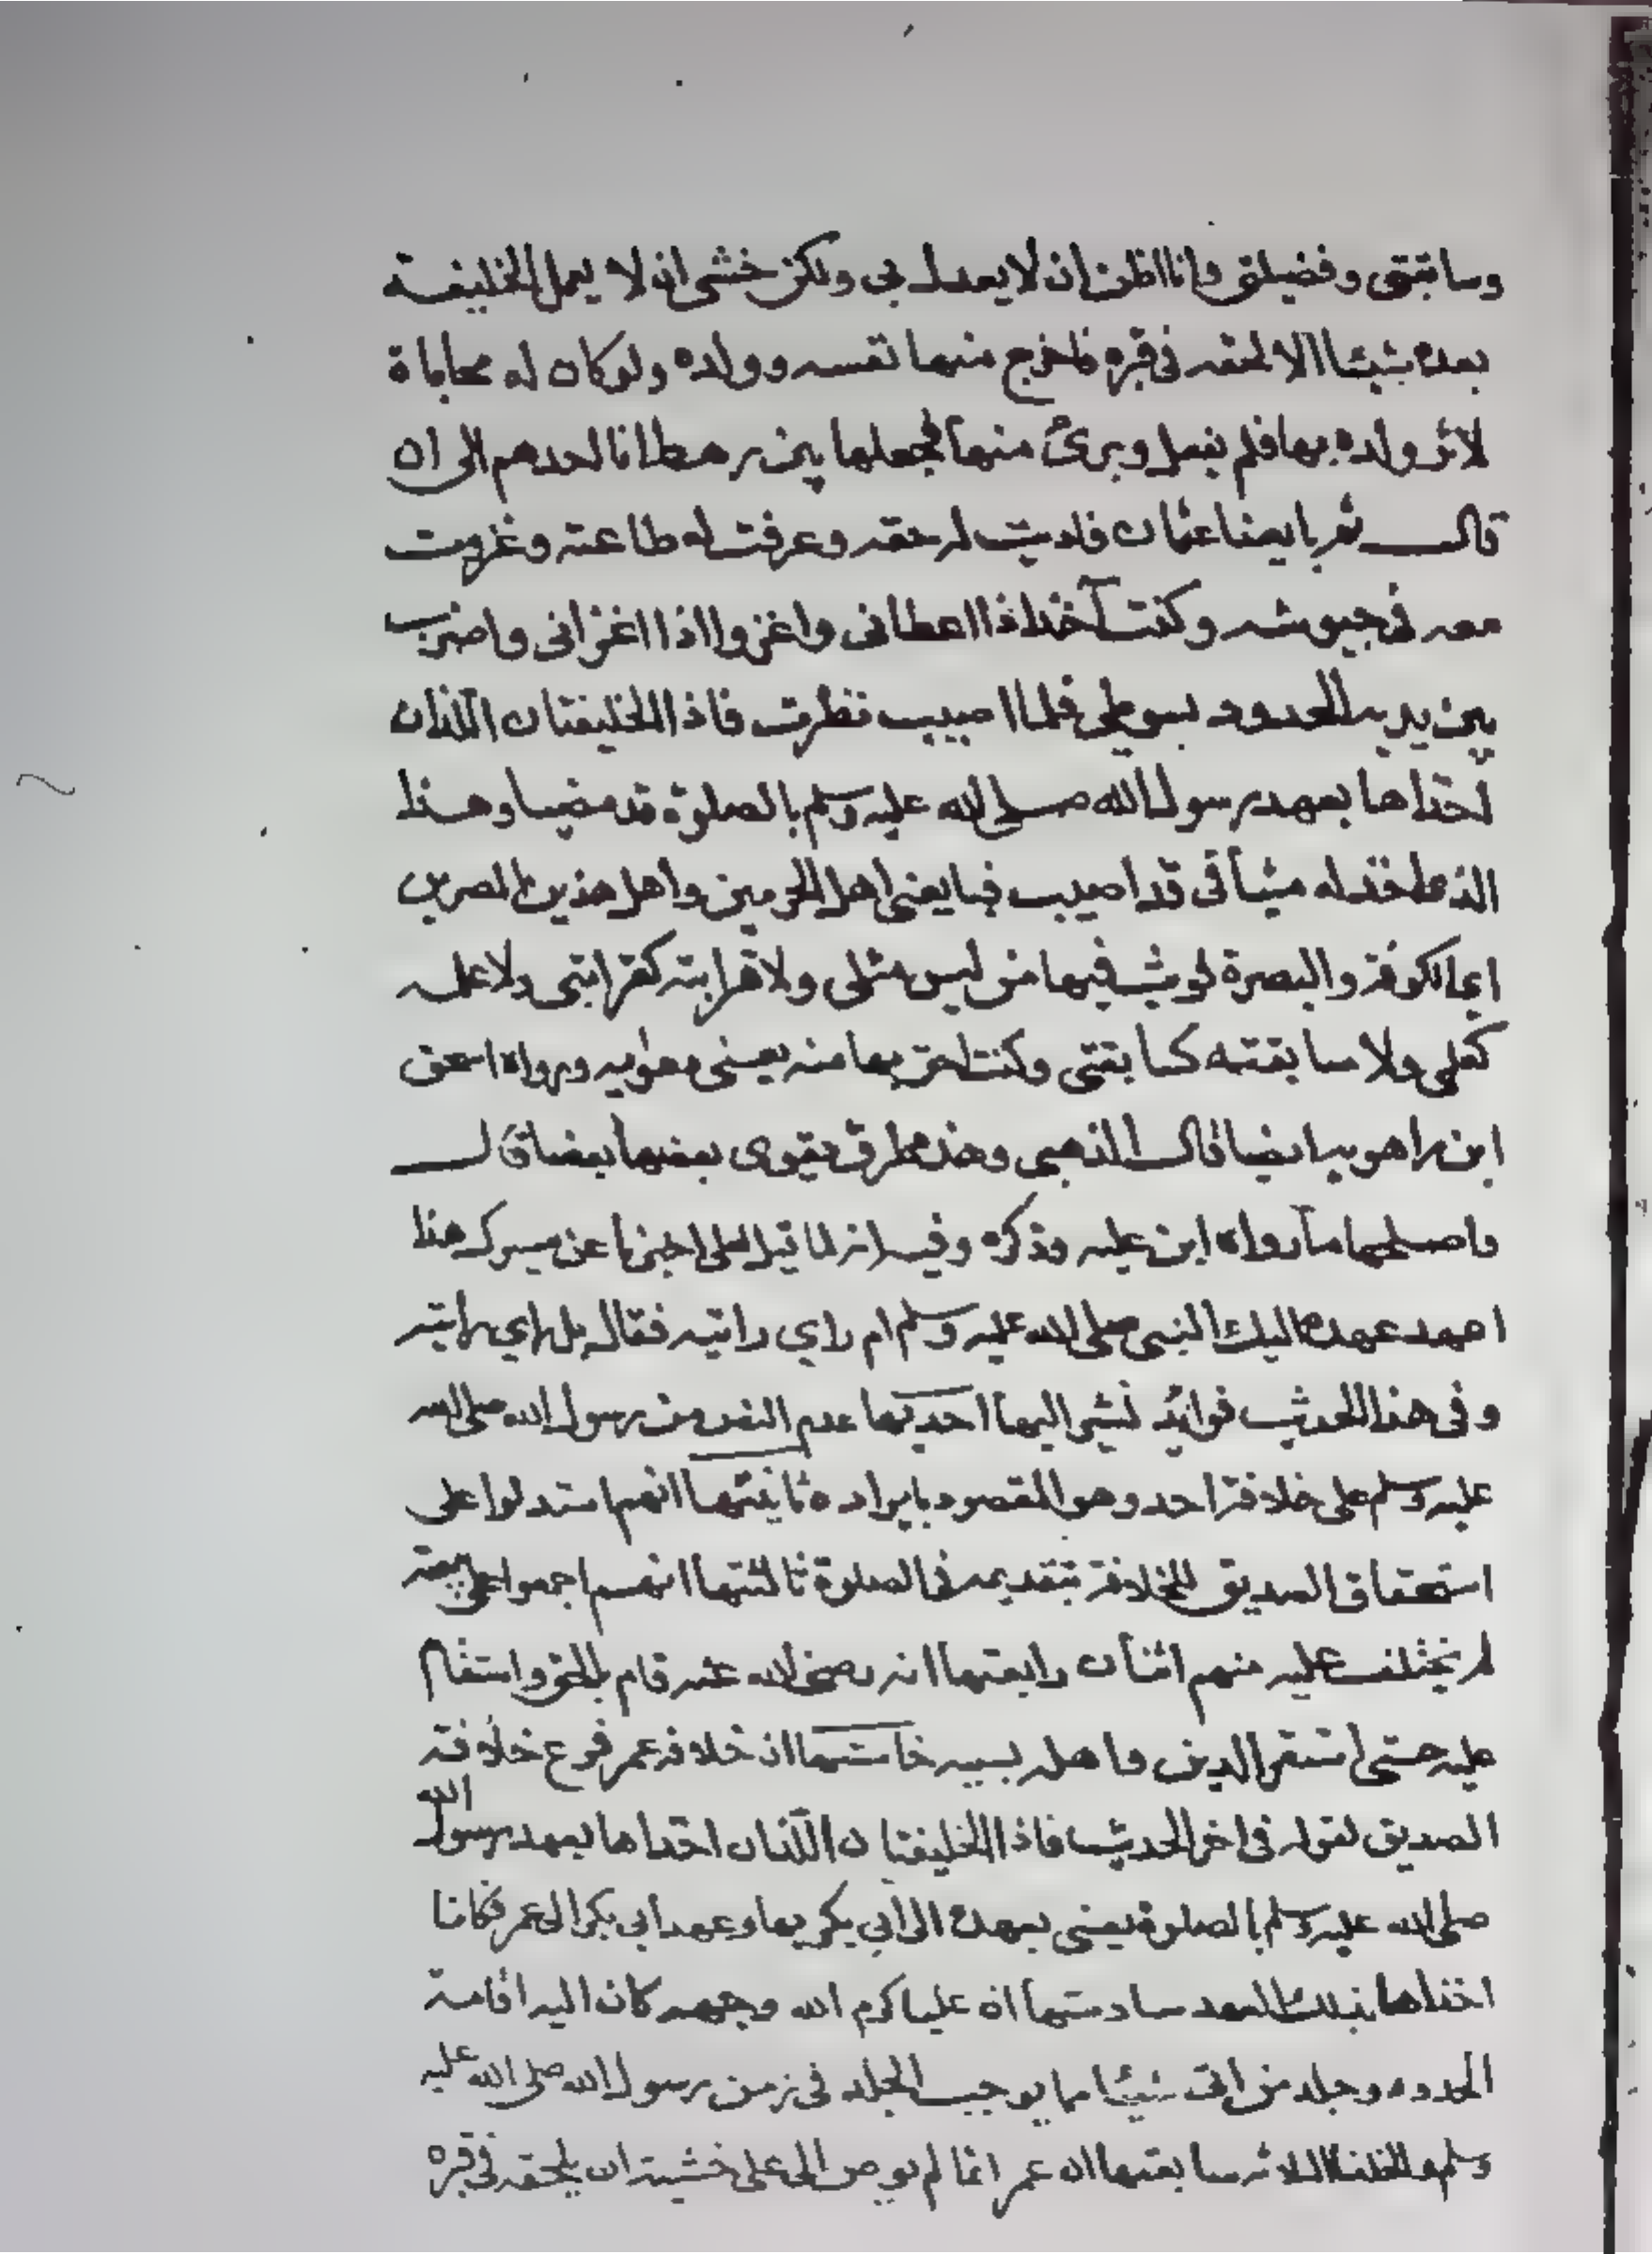 وسابقتى وفضيلتى وانا اظن ان لا يعدل بى ولكن خشى ان لا يعمل الخليفة
بعده شيئا الا لحقه فى قبره فاخرج منها نفسه وولده ولو كان له محاباة
لآثر ولده بها فلم يفعل وبرئ منها فجعلها بين رهط انا احدهم الى ان
قال ثم بايعنا عثمان فاديت له حقه وعرفت له طاعته وغزوت
معه فى جيوشه وكنت آخذ اذا اعطانى واغزوا اذا اغزانى واضرب
بين يديه الحدود بسوطى فلما اصيب نظرت فاذا الخليفتان اللذان
اخذاها بعهد رسول الله صلى الله عليه وسلم بالصلوة قد مضيا وهذا
الذى اخذ له ميثاقى قد اصيب فبايعنى اهل الحرمين واهل هذين المصرين
اى الكوفة والبصرة فوثب فيها من ليس مثلى ولا قرابته كقرابتى ولا علمه
كعلمى ولا سابقته كسابقتى وكنت احق بها منه يعنى معوية ورواه اسحق
ابن راهويه ايضا قال الذهبى وهذه طرق يقوى بعضها بعضا قال
واصلحها ما رواه ابن عليه وذكره وفيه انه لما قيل لعلى اخبرنا عن مسيرك هذا
اعهد عهده اليك النبى صلى الله عليه وسلم ام راي رايته فقال بل راي رايته
وفى هذا الحديث فوائد نشير اليها احديها عدم النص من رسول الله صلى الله
عليه وسلم على خلافة احد وهو المقصود بايراده ثانيتها انهم استدلوا على
استحقاق الصديق للخلافة بتقديمه فى الصلوة ثالثتها انهم اجمعوا على بيعته
لم يختلف عليه منهم اثنان رابعتها انه رضى الله عنه قام بالحق واستقام
عليه حتى استقر الدين واهله بسببه خامستها ان خلافة عمر فرع خلافة
الصديق لقوله فى اخر الحديث فاذا الخليفتان اللذان اخذاها بعهد رسول الله
صلى الله عليه وسلم بالصلوة يعنى بعهده الى ابي بكر بها وعهد ابي بكر الى عمر فكانا
اخذاها بذلك العهد سادستها ان عليا كرم الله وجهه كان اليه اقامة
الحدود وجلد من اتى شيئا مما يوجب الجلد فى زمن رسول الله صلى الله عليه
وسلم والخلفاء الثلاثة سابعتها ان عمر انما لم يوص الى على خشية ان يلحقه فى قبره